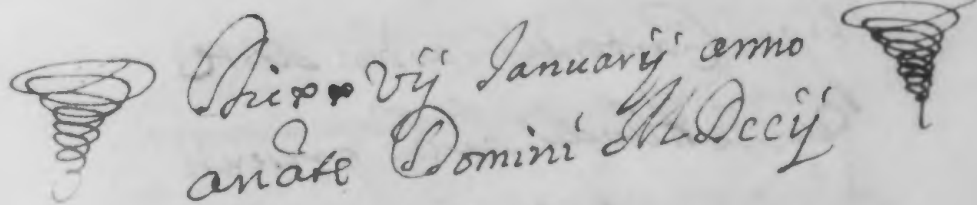 Die xxvij Januarij anno
a nãte Domini MDccij